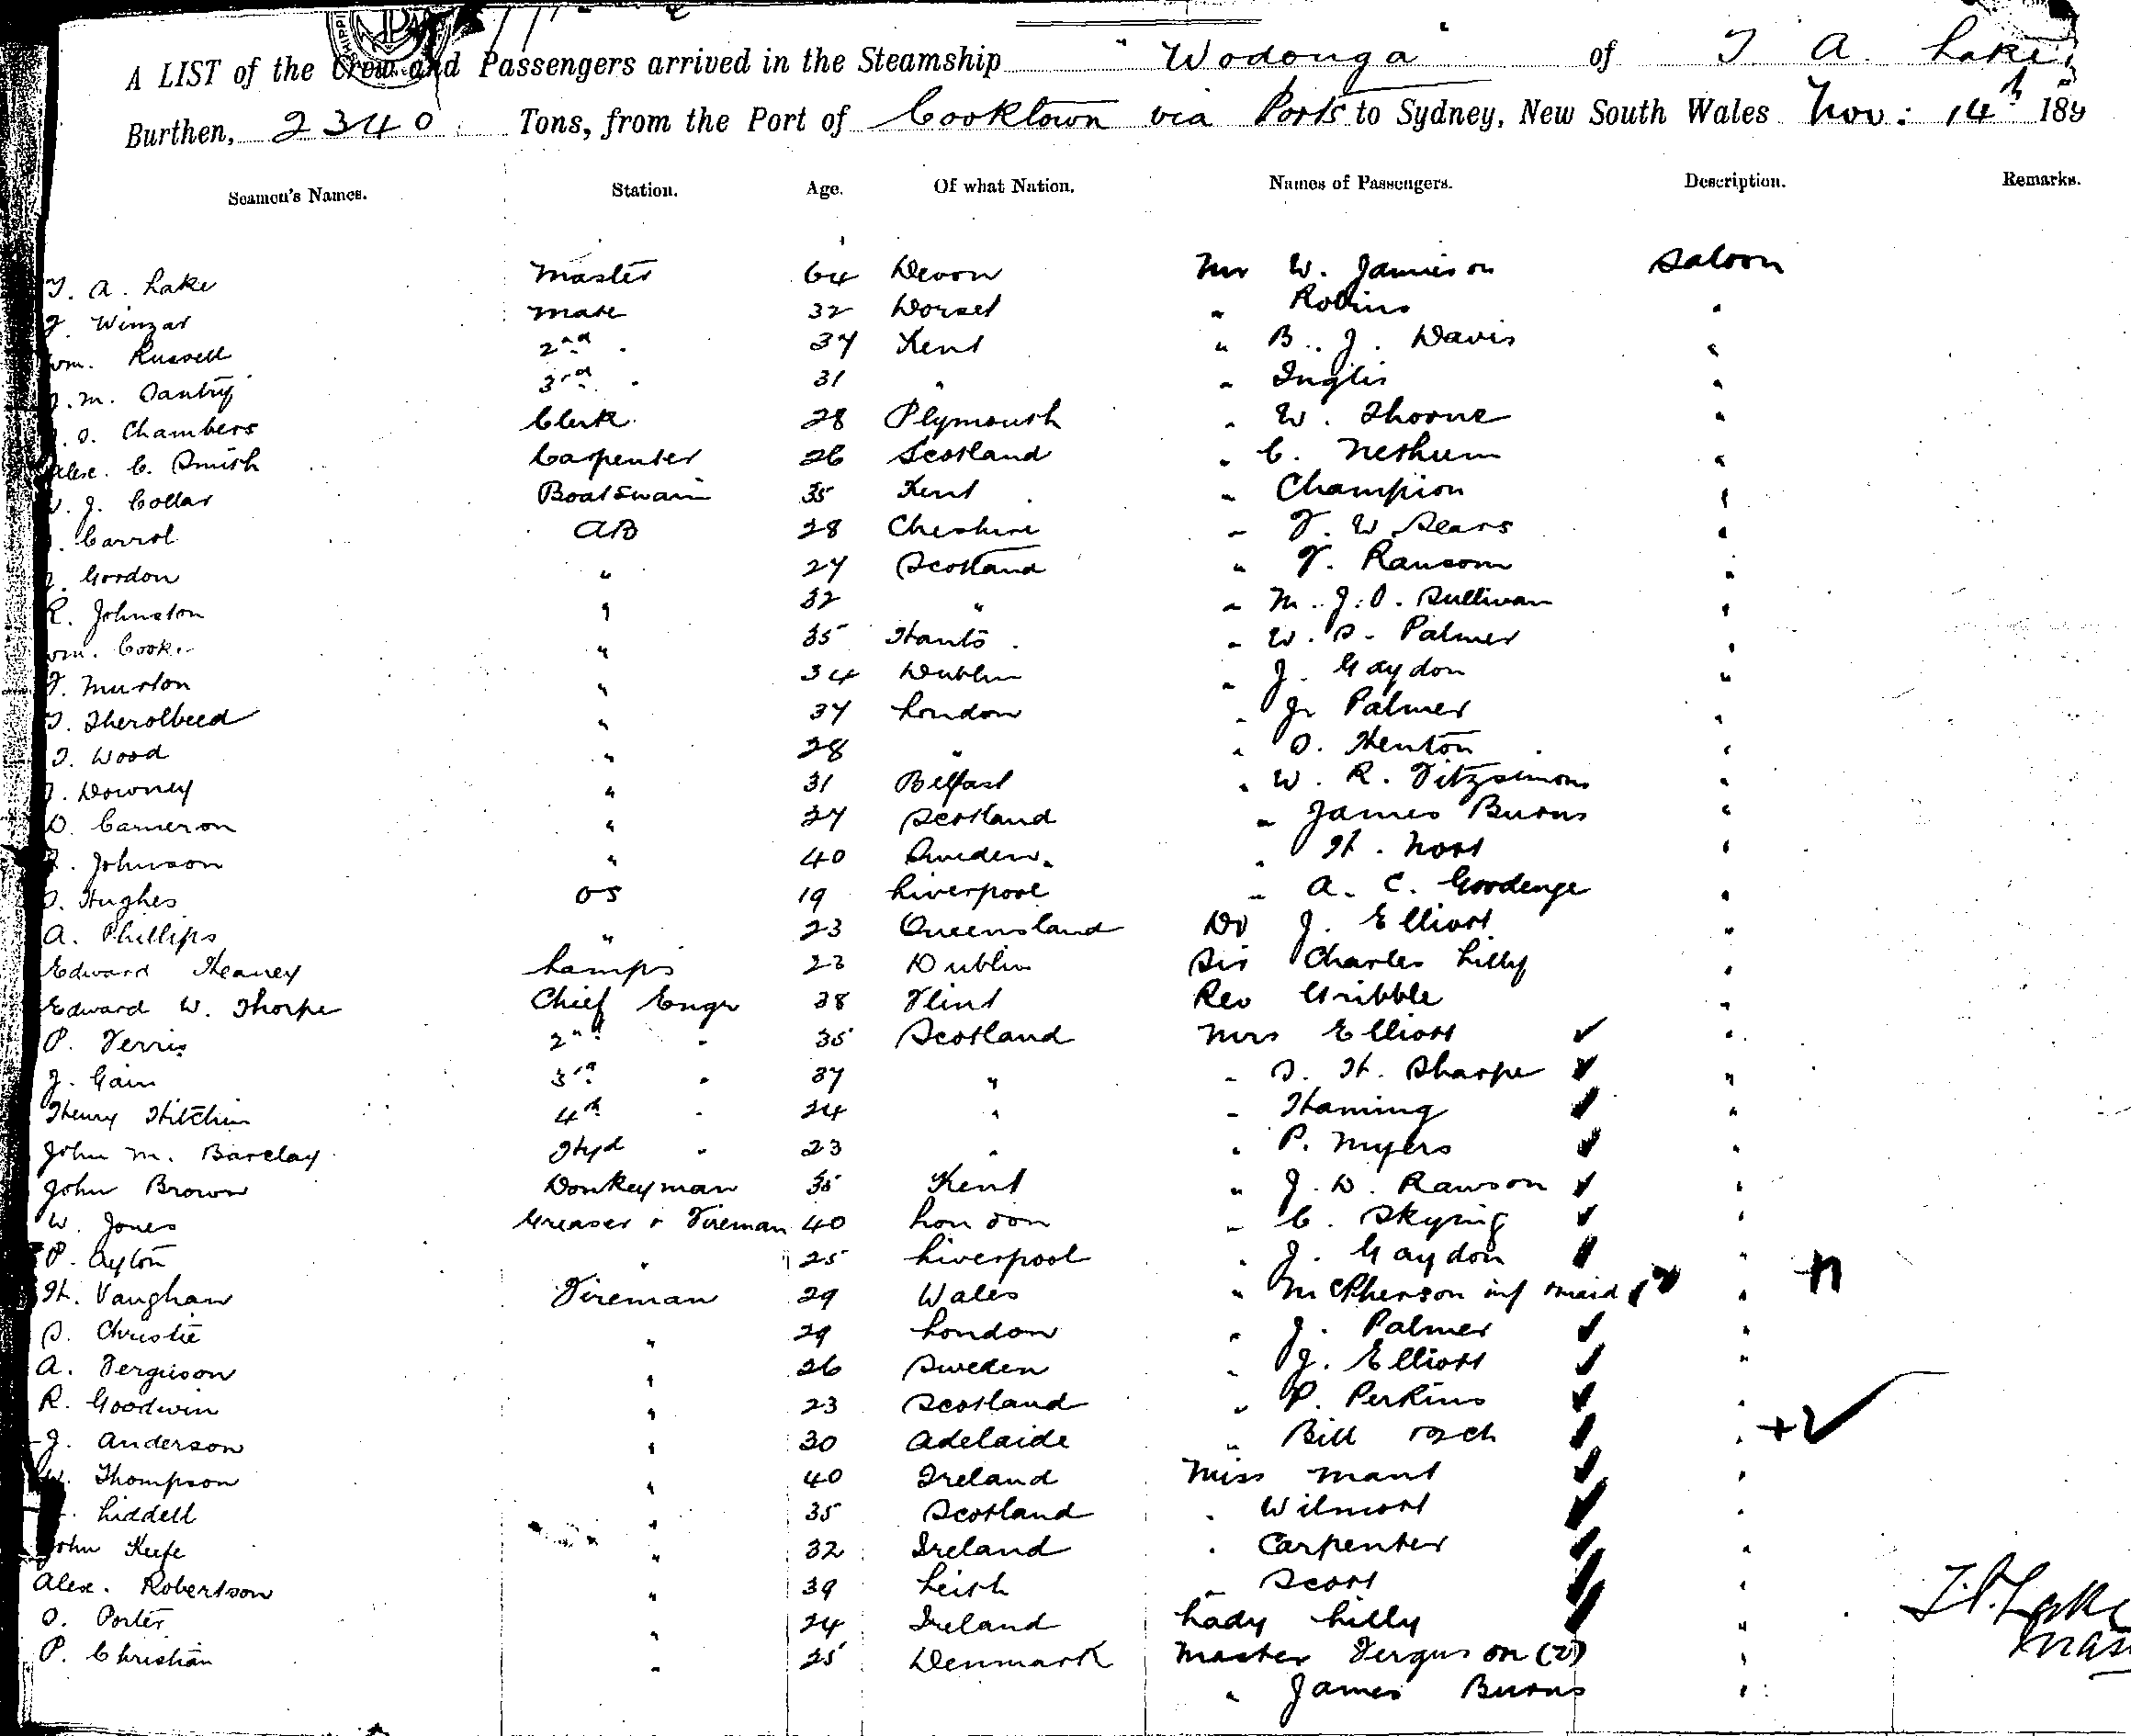 A LIST of the Crew and Passengers arrived in the Steamship "Wodonga" of T. A. Lake,
Burthen, 2340 Tons, from the Port of Cooktown via Ports to Sydney, New South Wales Nov: 14th 189
Seamen's Names. Station. Age. Of what Nation. Names of Passengers. Description. Remarks.
T. A. Lake Master 64 Devon Mr W. Jamieson Saloon
Winzar Mate 32 Dorset " Robins "
Wm. Russell 2nd " 37 Kent " B. J. Davis "
M. Dantry 3rd " 31 " " Inglis "
Chambers Clerk 28 Plymouth " W. Thorne "
Alex. C. Smith Carpenter 26 Scotland " C. "
W. J. Collar Boatswain 35 Kent " Champion "
Carrol AB 28 Cheshire " F. W. Sears "
Gordon " 27 Scotland " F. Ransom "
R. Johnston " 32 " " M. J. O. Sullivan "
Wm. Cook " 35 Hants " W. S. Palmer "
Murton " 34 Dublin " J. Gaydon "
T. " 37 London " J. Palmer "
Wood " 28 " " Henton "
Downey " 31 Belfast " W. R. Fitzsimons "
D. Cameron " 27 Scotland " James Burns "
Johnson " 40 Sweden " H. "
Hughes OS 19 Liverpool " A. C. "
A. Phillips " 23 Queensland Dr J. Elliott "
Edward Heaney Lamps 23 Dublin Sir Charles Lilly "
Edward W. Thorpe Chief Engr 38 Flint Rev Gribble "
P. Ferris 2nd " 35 Scotland Mrs Elliott "
J. Gain 3rd " 37 " " S. H. Sharpe "
Henry Hitchin 4th " 24 " " Haming "
John M. Barclay " 23 " " P. Myers "
John Brown Donkeyman 35 Kent " J. D. Rawson "
W. Jones Greaser & Fireman 40 London " C. Skyring "
P. Ayton " 25 Liverpool " J. Gaydon "
H. Vaughan Fireman 29 Wales " McPherson inf maid "
S. Christie " 29 London " J. Palmer "
A. Ferguson " 26 Sweden " J. Elliott "
R. Goodwin " 23 Scotland " P. Perkins "
J. Anderson " 30 Adelaide " Bill "
W. Thompson " 40 Ireland Miss Mant "
Liddell " 35 Scotland " Wilmott "
John Keefe " 32 Ireland " Carpenter "
Alex. Robertson " 39 Leith " Scott "
O. Porter " 24 Ireland Lady Lilly "
P. Christian " 25 Denmark Master Ferguson (2) "
" James Burns "
T. A. Lake